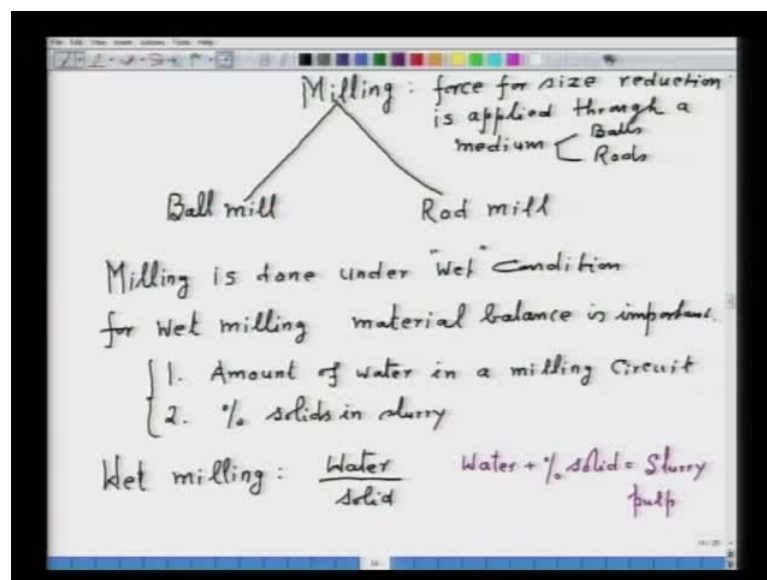 File Edit View Insert Actions Tools Help
Milling : force for size reduction
is applied through a
medium Balls
Rods
Ball mill Rod mill
Milling is done under "Wet" Condition
for wet milling material balance is important.
1. Amount of water in a milling Circuit
2. % solids in slurry
Wet milling : Water
solid
Water + % solid = Slurry
pulp